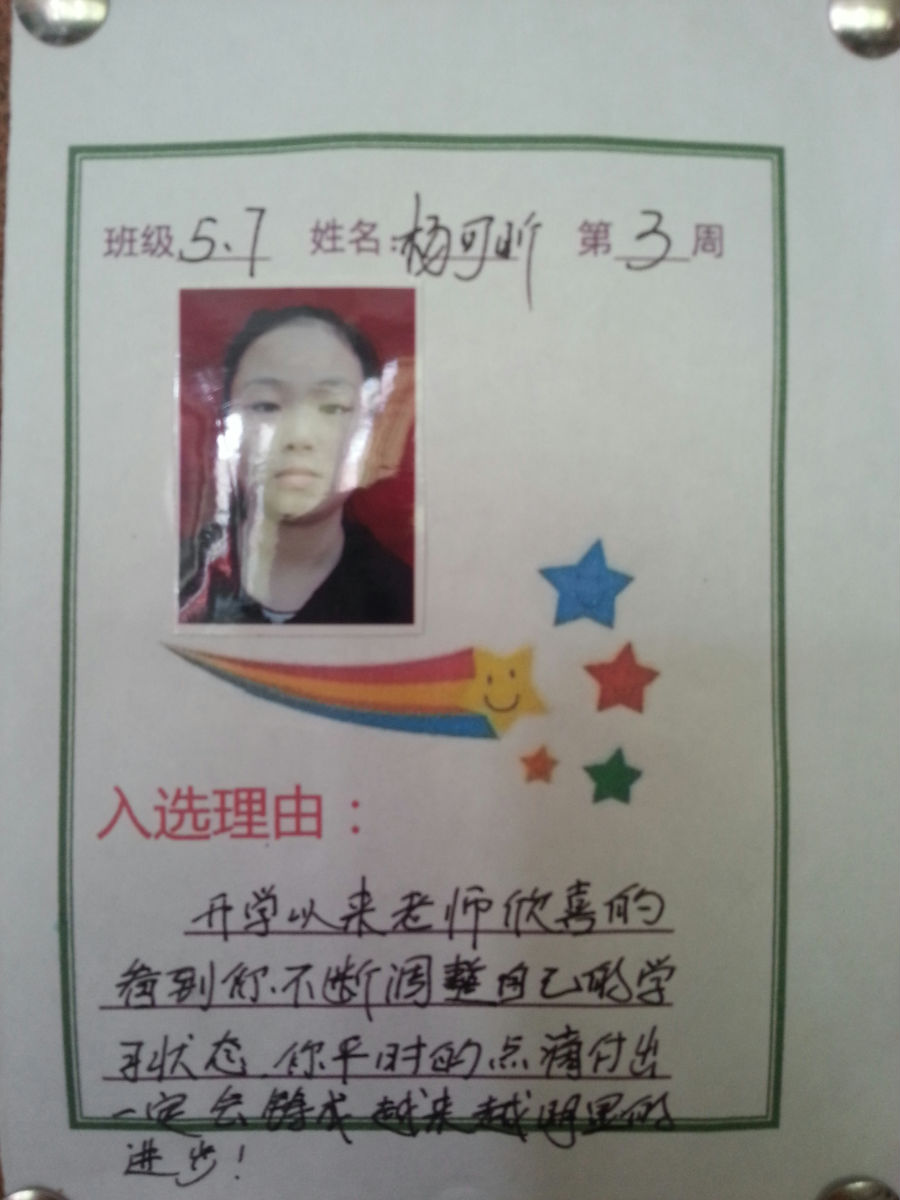 班级 5.7 姓名: 杨可昕 第 3 周
入选理由:
开学以来老师欣喜的
看到你不断调整自己的学
习状态,你平时的点滴付出
一定会铸成越来越明显的
进步!